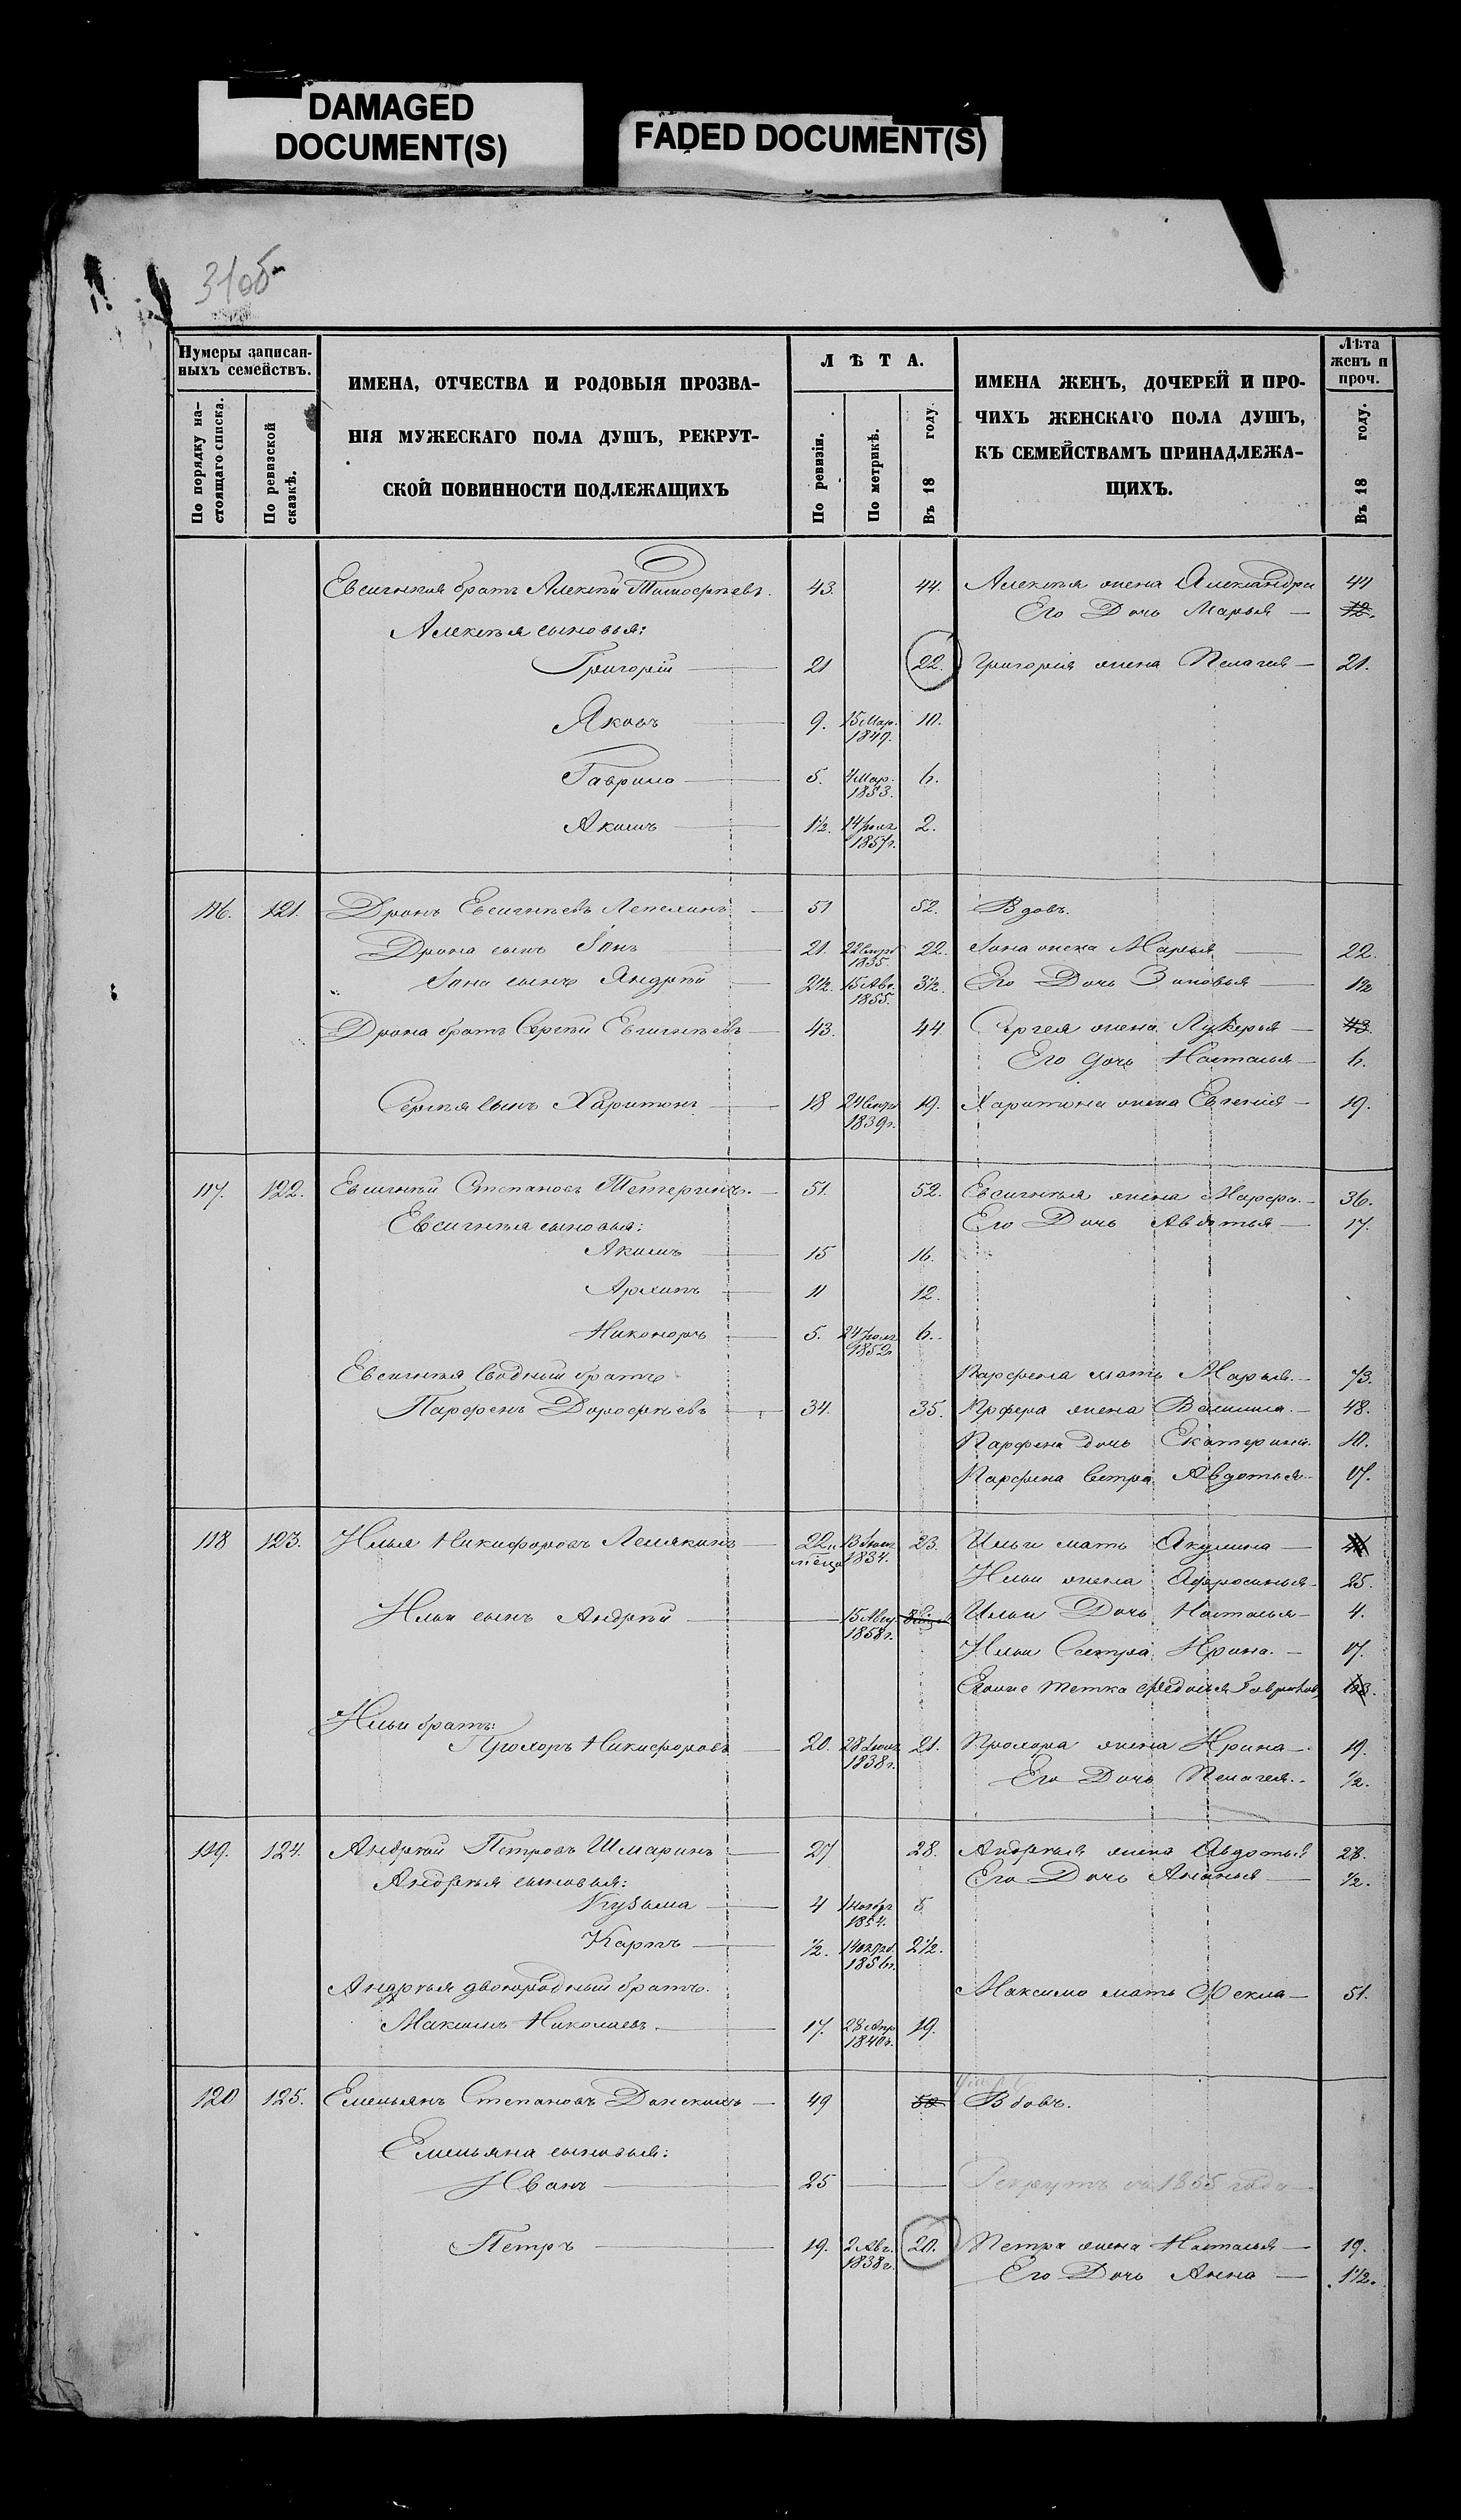 DAMAGED
DOCUMENT(S)
FADED DOCUMENT(S)
31об
Нумеры записан-
ныхъ семействъ.
По порядку на-
стоящаго списка.
По ревизской
сказкѣ.
ИМЕНА, ОТЧЕСТВА И РОДОВЫЯ ПРОЗВА-
НІЯ МУЖЕСКАГО ПОЛА ДУШЪ, РЕКРУТ-
СКОЙ ПОВИННОСТИ ПОДЛЕЖАЩИХЪ
ЛѢТА.
По ревизіи.
По метрикѣ.
Въ 18 году.
ИМЕНА ЖЕНЪ, ДОЧЕРЕЙ И ПРО-
ЧИХЪ ЖЕНСКАГО ПОЛА ДУШЪ,
КЪ СЕМЕЙСТВАМЪ ПРИНАДЛЕЖА-
ЩИХЪ.
Лѣта
женъ и
проч.
Въ 18 году.
Евсигнѣя братъ Алексѣй Тимофѣевъ. 43. 44. Алексѣя жена Александра 44
Его Дочь Марья — 12.
Алексѣя сыновья:
Григорій — 21 22. Григорія жена Пелагея — 21.
Яковъ — 9. 15 Мар. 1849. 10.
Гаврило — 5. 4 Мар. 1853. 6.
Акимъ — 1½. 14 1857г. 2.
116. 121. Дронъ Евсигнѣевъ Лепехинъ — 51 52. Вдовъ.
Дрона сынъ Іонъ — 21. 22 1835. 22. Іона жена Марья — 22.
Іона сынъ Андрѣй — 2½. 15 Авг. 1855. 3½. Его Дочь Зиновья — 1½
Дрона братъ Сергѣй Евсигнѣевъ — 43. 44. Сергея жена Лукерья — 43.
Его дочь Наталья — 6.
Сергѣя сынъ Харитонъ — 18 24 1839г. 19. Харитона жена Евгенія — 19.
117. 122. Евсигнѣй Степановъ Тетеринъ. — 51. 52. Евсигнѣя жена Марфа. — 36.
Евсигнѣя сыновья: Его Дочь Авдотья — 17.
Акимъ — 15 16.
Архипъ — 11 12.
Никоноръ — 5. 24 1852 6.
Евсигнѣя сводный братъ Парфена мать Марья. — 73.
Парфенъ Дорофѣевъ — 34. 35. жена — 48.
Парфена дочь Екатерина. 10.
Парфена сестра Авдотья — 17.
118 123. Илья Никифоровъ — 22 13 1834. 23. Ильи мать Акулина —
Ильи жена Афросинья — 25.
Ильи сынъ Андрѣй — 15 Авг. 1858г. Ильи Дочь Наталья — 4.
Ильи Сестра Ирина. — 17.
тетка Федосья
Ильи братъ:
Прохоръ Никифоровъ — 20. 28 1838г. 21. Прохора жена Ирина — 19.
Его Дочь Пелагея. — ½.
119. 124. Андрѣй Петровъ Шмаринъ — 27 28. Андрѣя жена Авдотья 28.
Андрѣя сыновья: Его Дочь Ананья — ½.
Кузьма — 4 1 Ноябр 1854. 5
Карпъ — ½. 14 185 2½.
Андрѣя двоюродный братъ. Максима мать Фекла — 51.
Максимъ Николаевъ. — 17. 28 Апр 1840г. 19.
120 125. Емельянъ Степановъ Донскихъ — 49 50 Вдовъ.
Емельяна сыновья:
Иванъ — 25 Рекрутъ съ 1855 года
Петръ — 19. 2 Авг. 1838г. 20. Петра жена Наталья — 19.
Его Дочь Анна — 1½.